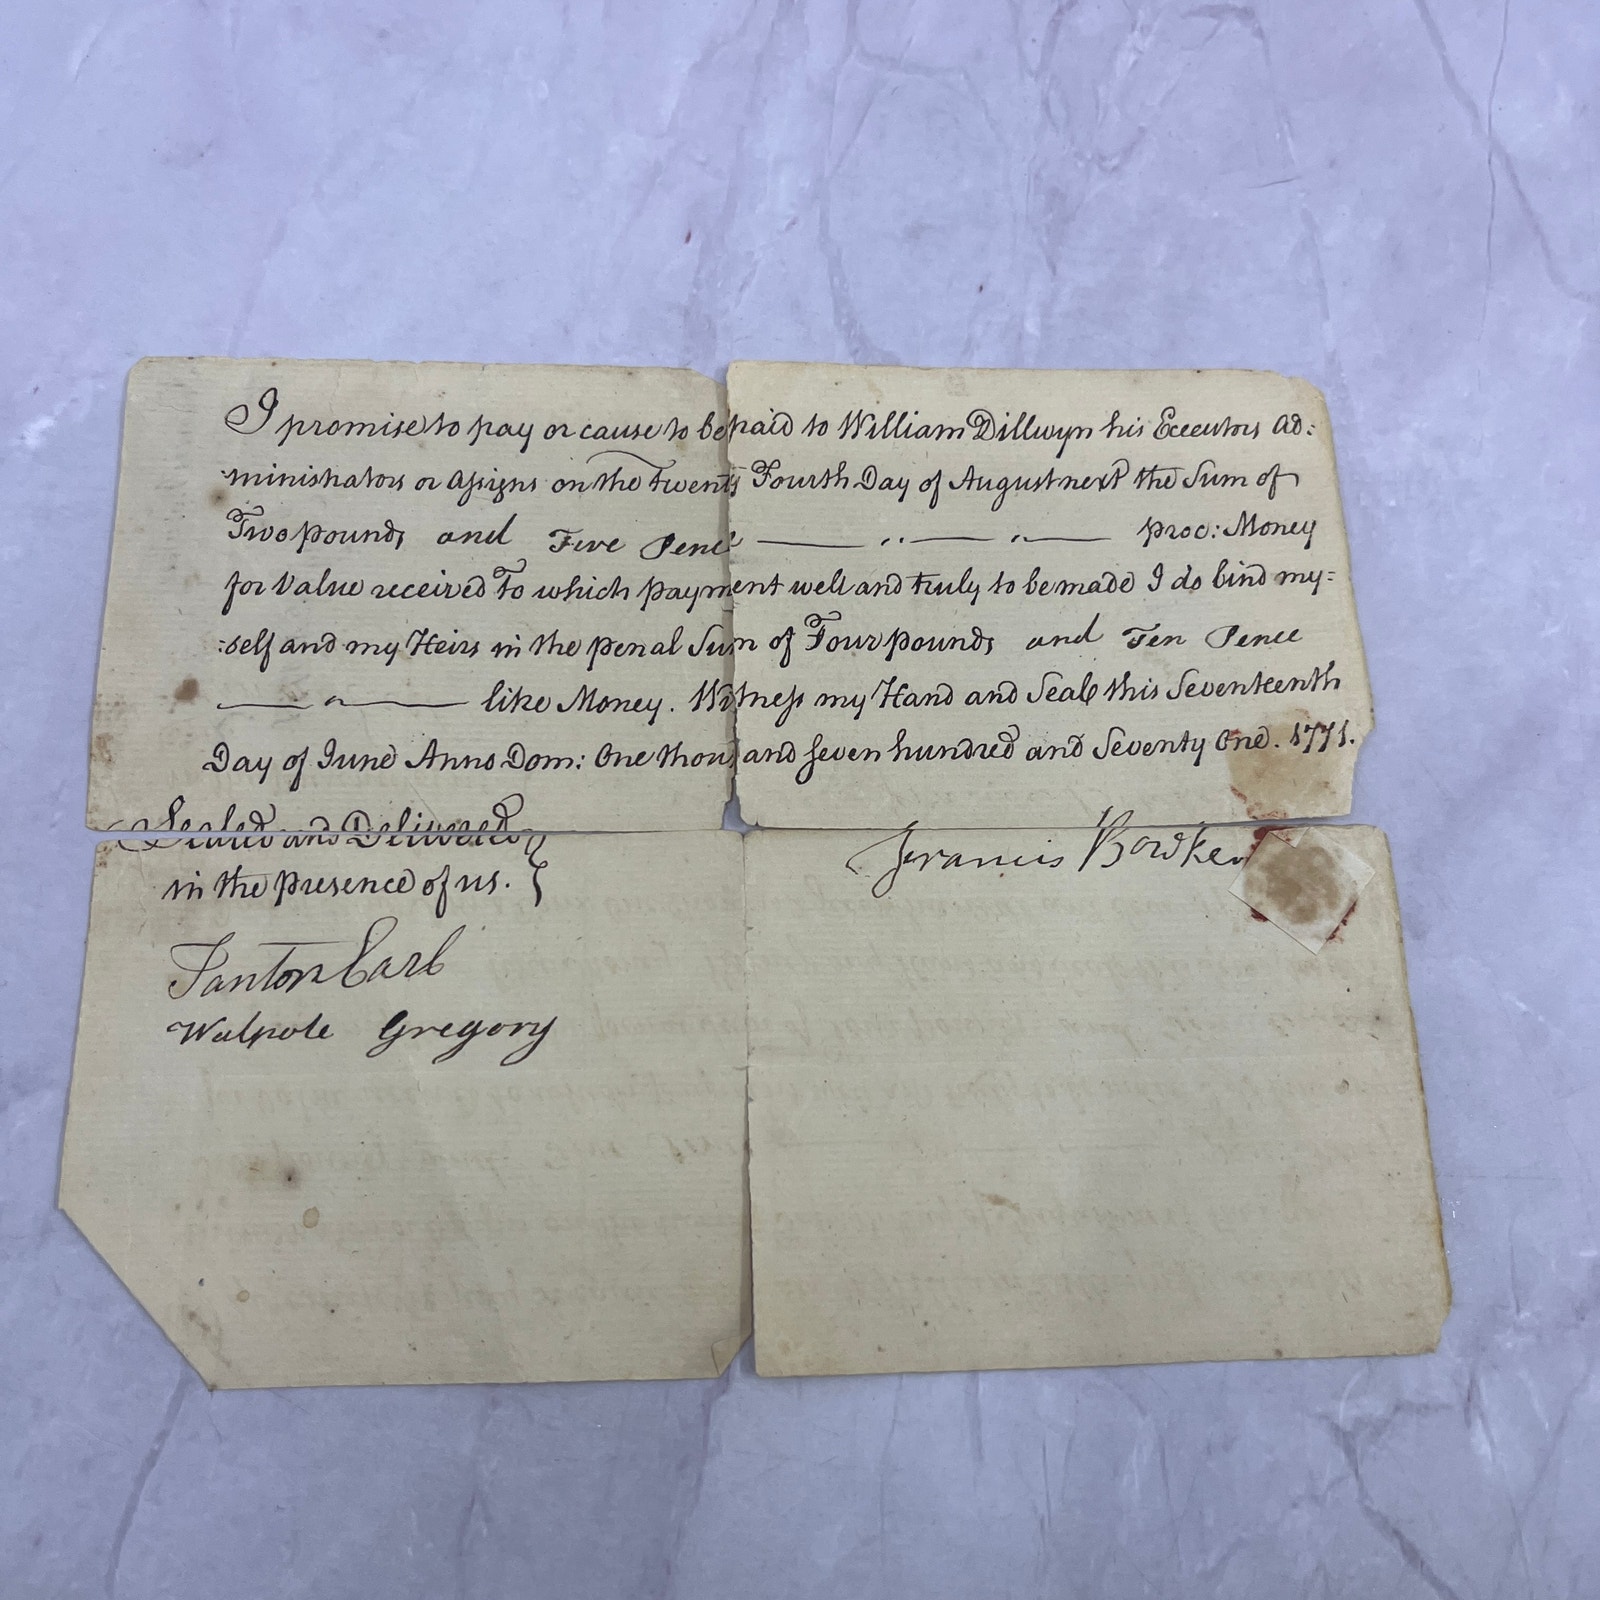 I promise to pay or cause to be paid to William Dillwyn his Executors Ad:
:ministrators or assigns on the Twenty Fourth Day of August next the Sum of
Two pounds and Five Pence proc: Money
for Value received To which payment well and truly to be made I do bind my=
:self and my Heirs in the penal Sum of Four pounds and Ten Pence
like Money. Witness my Hand and Seal this Seventeenth
Day of June Anno Dom: One thousand seven hundred and Seventy One. 1771.
Sealed and Delivered
in the presence of us.
Francis Bowker
Tanton Earl
Walpole Gregory